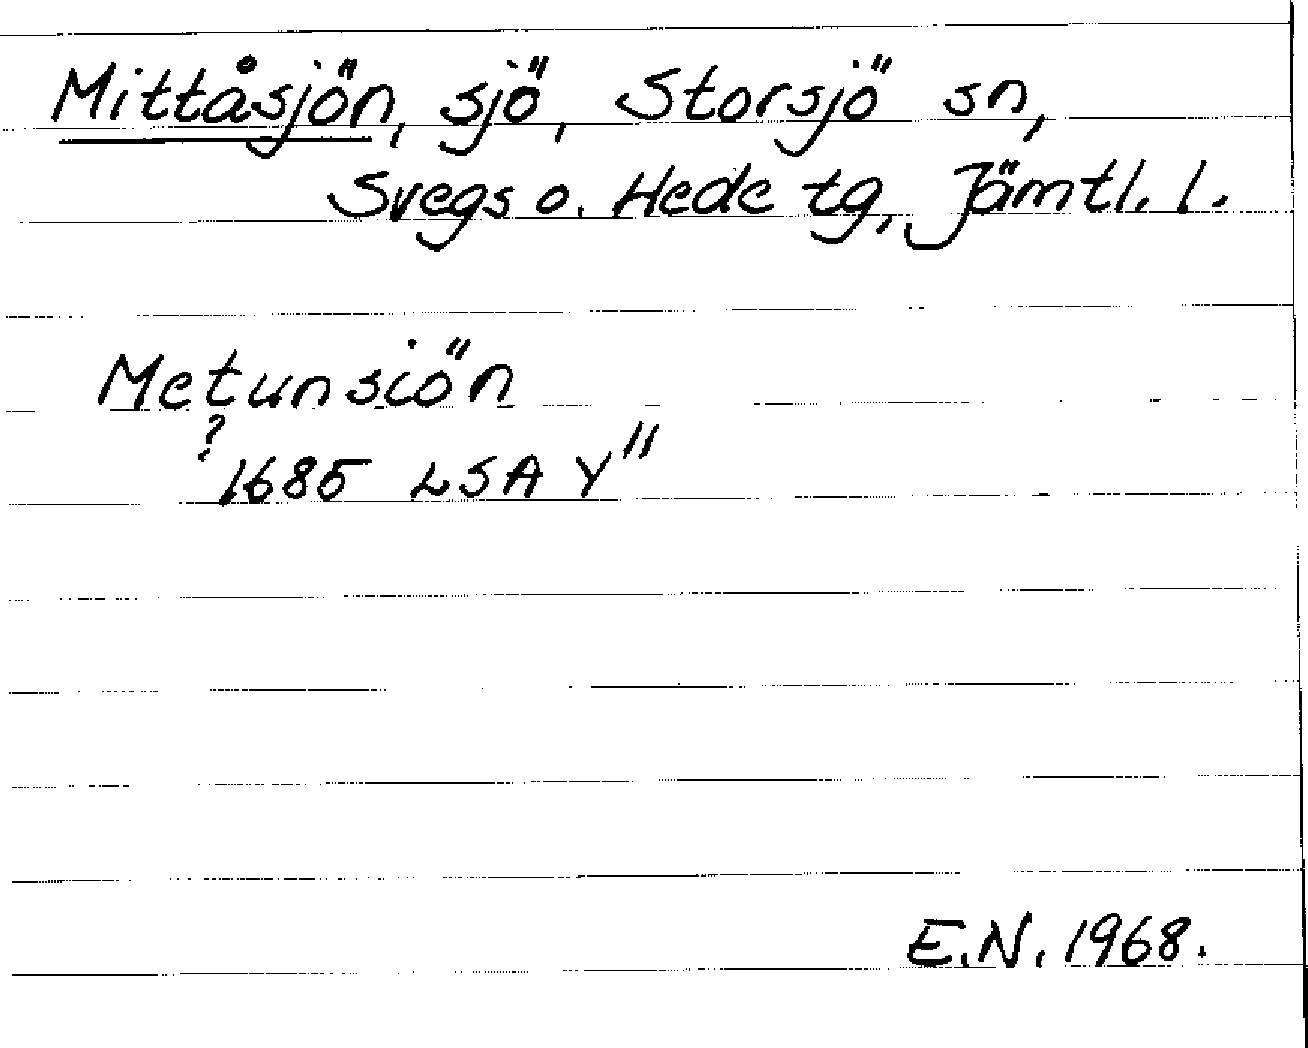 Mittåsjön, sjö, Storsjö sn,
Svegs o. Hede tg, Jämtl. l.
Metunsiön
?
1685 LSA Y"
E.N. 1968.